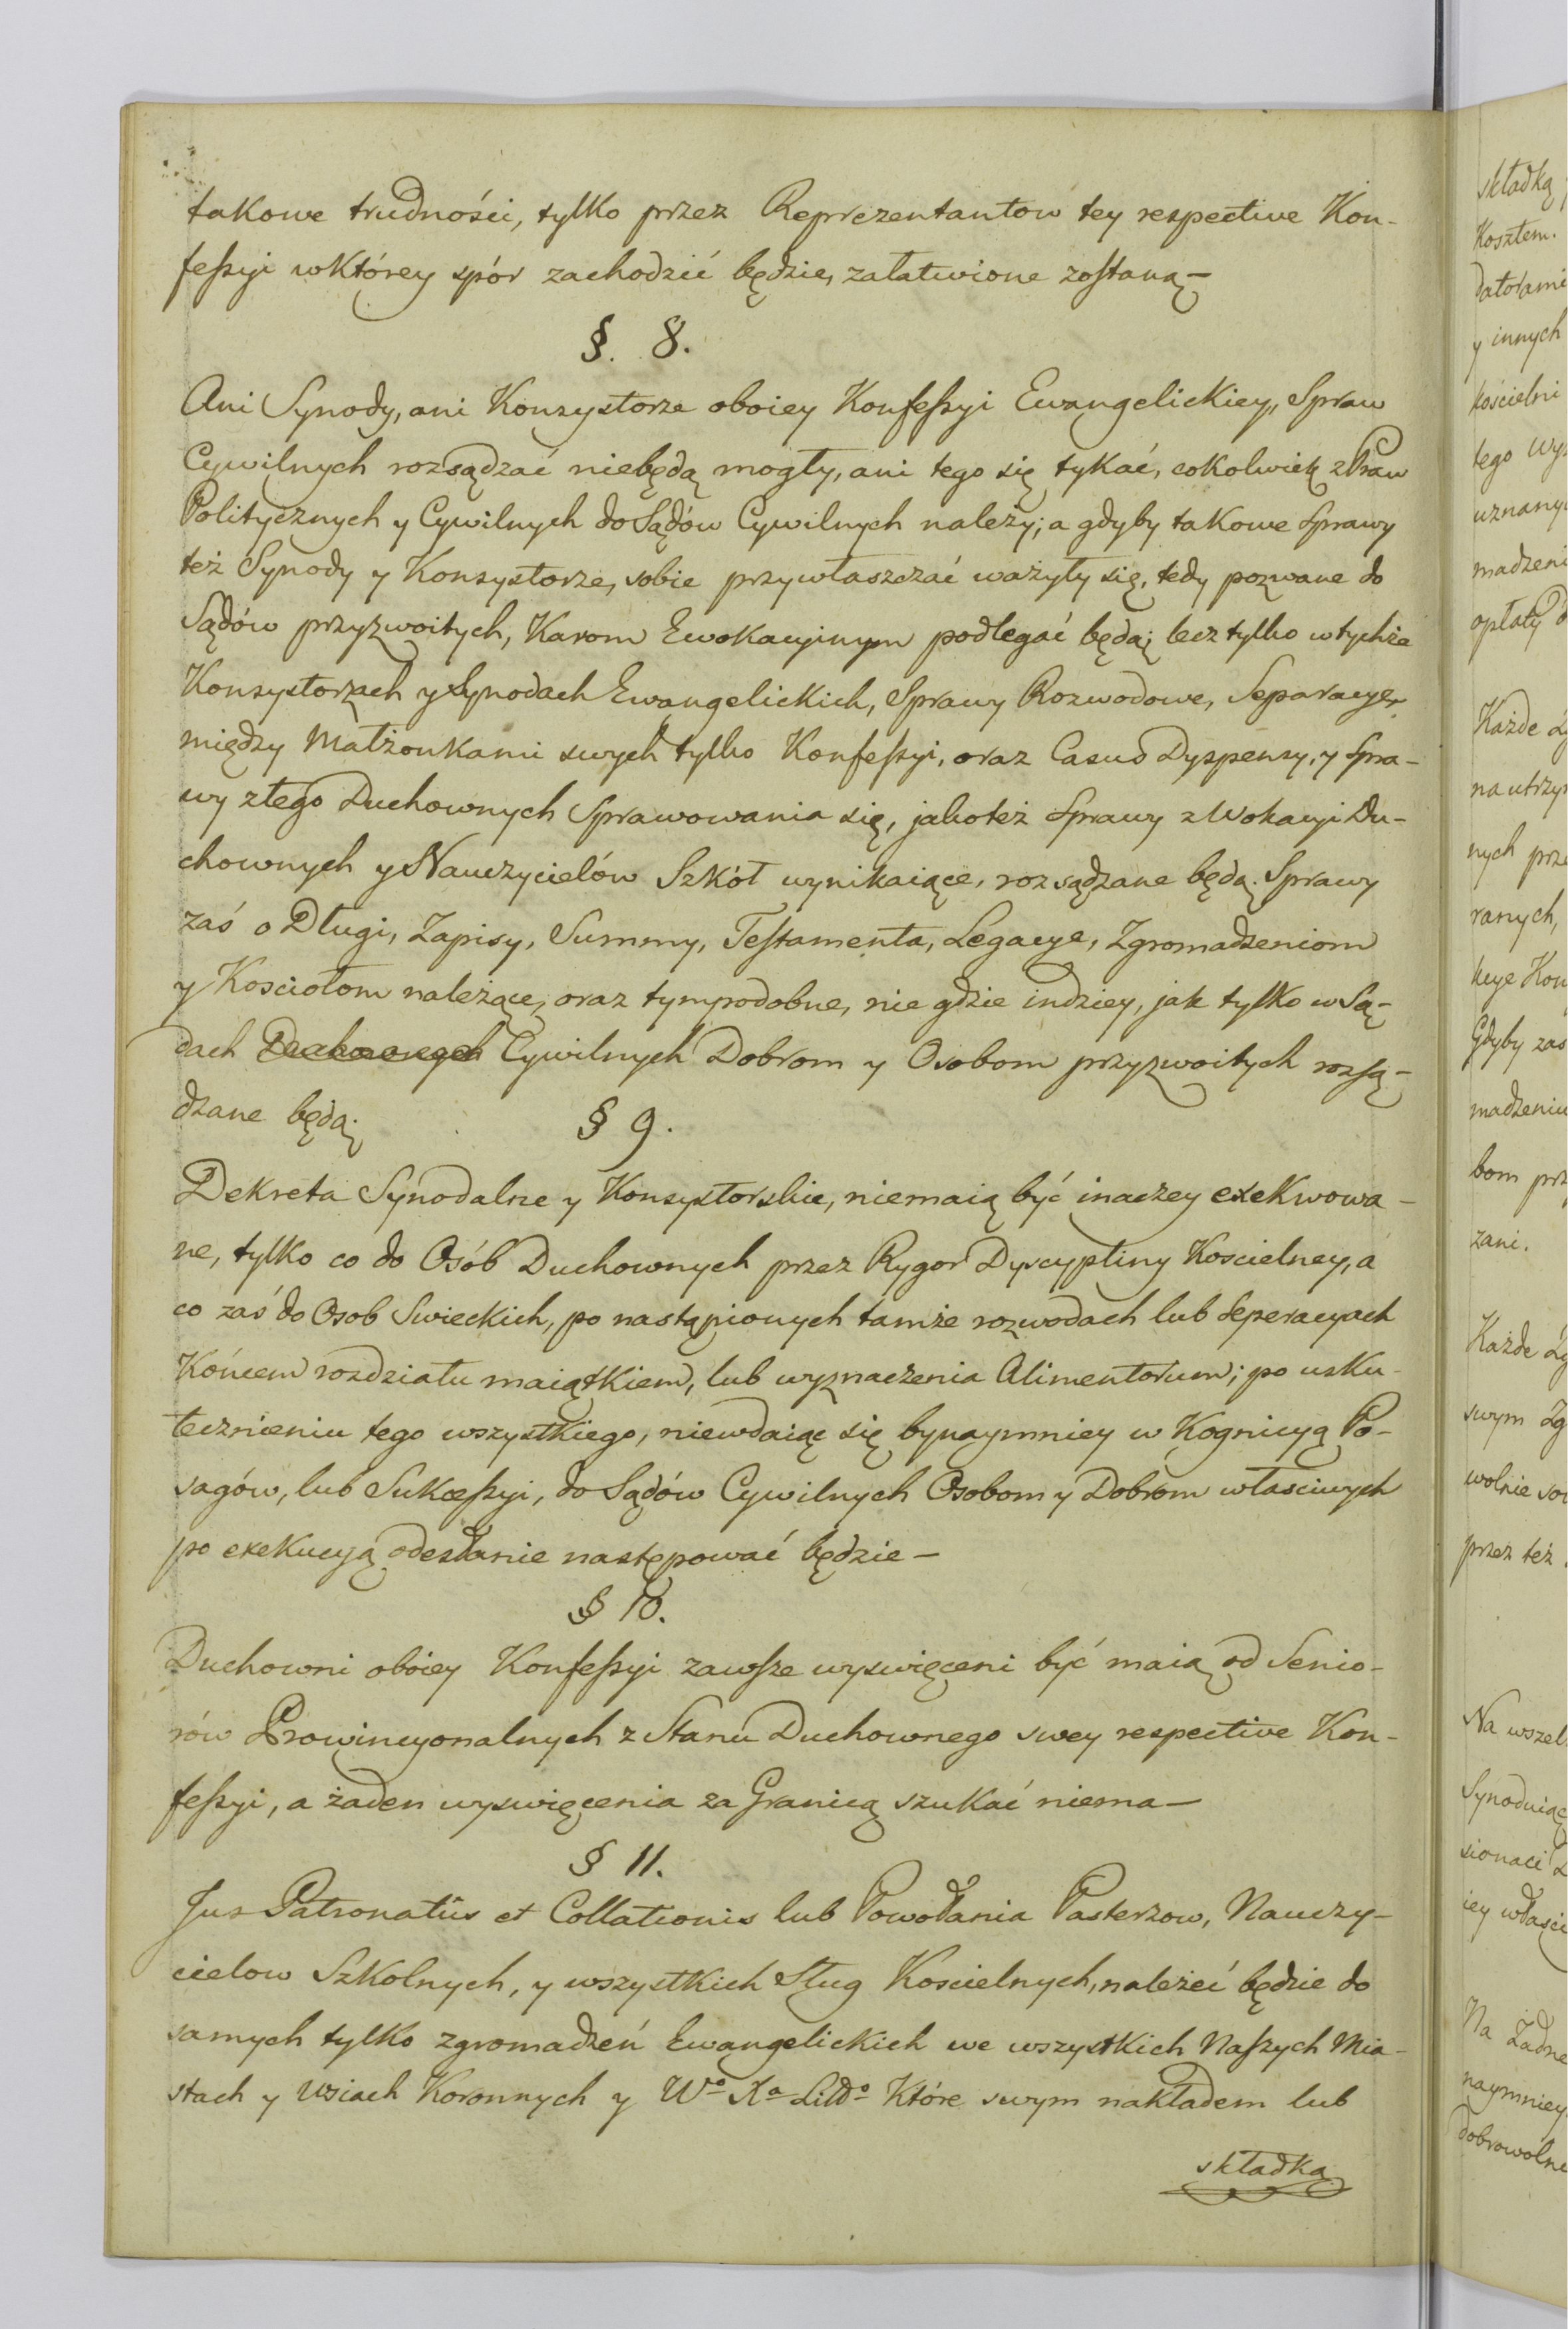 takowe trudności, tylko przez Reprezentantow tey respective Kon-
feßyi wktórey spór zachodzić będzie, załatwione zostaną —
§. 8.
Ani Synody, ani Konzystorze oboiey Konfeßyi Ewangelickiey, Spraw
Cywilnych rozsądzać niebędą mogły, ani tego się tykać, cokolwiek z Praw
Politycznych y Cywilnych do Sądów Cywilnych należy; a gdyby takowe sprawy
też Synody y Konzystorze, sobie przywłaszczać ważyły się, tedy pozwane do
Sądów przyzwoitych, Karom Ewokacyinym podlegać będą; lecz tylko w tychże
Konzystorzach y Synodach Ewangelickich, Sprawy Rozwodowe, Separacye,
między Małżonkami swych tylko Konfeßyi, oraz Casus Dyspensy, y Spra-
wy złego Duchownych Sprawowania się, jakoteż Sprawy z Wokacyi Du-
chownych y Nauczycielów Szkół wynikaiące, rozsądzane będą. Sprawy
zaś o Długi, Zapisy, Summy, Testamenta, Legacye, Zgromadzeniom
y Kosciołom należące, oraz tympodobne, nie gdzie indziey, jak tylko w Są-
dach Duchownych Cywilnych Dobrom y Osobom przyzwoitych rozsą-
dzane będą.
§ 9.
Dekreta Synodalne y Konsystorskie, niemaią być inaczey exekwowa-
ne, tylko co do Osób Duchownych przez Rygor Dyscypliny Koscielney, a
co zaś do Osob Swieckich, po nastąpionych tamże rozwodach lub seperacyach
Końcem rozdziału maiątkiem, lub wyznaczenia Alimentorum; po usku-
tecznieniu tego wszystkiego, niewdaiąc się bynaymniey w Kognicyą Po-
sagów, lub Sukceßyi, do Sądów Cywilnych Osobom y Dobrom własciwych
po exekucyą odesłanie następować będzie —
§ 10.
Duchowni oboiey Konfeßyi zawsze wyswięceni być maią od Senio-
rów Prowincyonalnych z Stanu Duchownego swey respective Kon-
feßyi, a żaden wyswięcenia za Granicą szukać niema —
§ 11.
Jus Patronatûs et Collationis lub Powołania Pasterzow, Nauczy-
cielow Szkolnych, y wszystkich Sług Koscielnych, należeć będzie do
samych tylko zgromadzeń Ewangelickich we wszystkich Naszych Mia-
stach y Wsiach Koronnych y Wº Xª Littº Które swym nakładem lub
składką
składką
Kosztem.
datorami
y innych
kościelni
tego
madzeni
opłaty
Każde
nych
ranych,
Gdyby zas
madzeniu
bom
zani.
Każde
swym
wolnie
przez też
Na
iey
Na Żadne
naymniey
dobrowolne